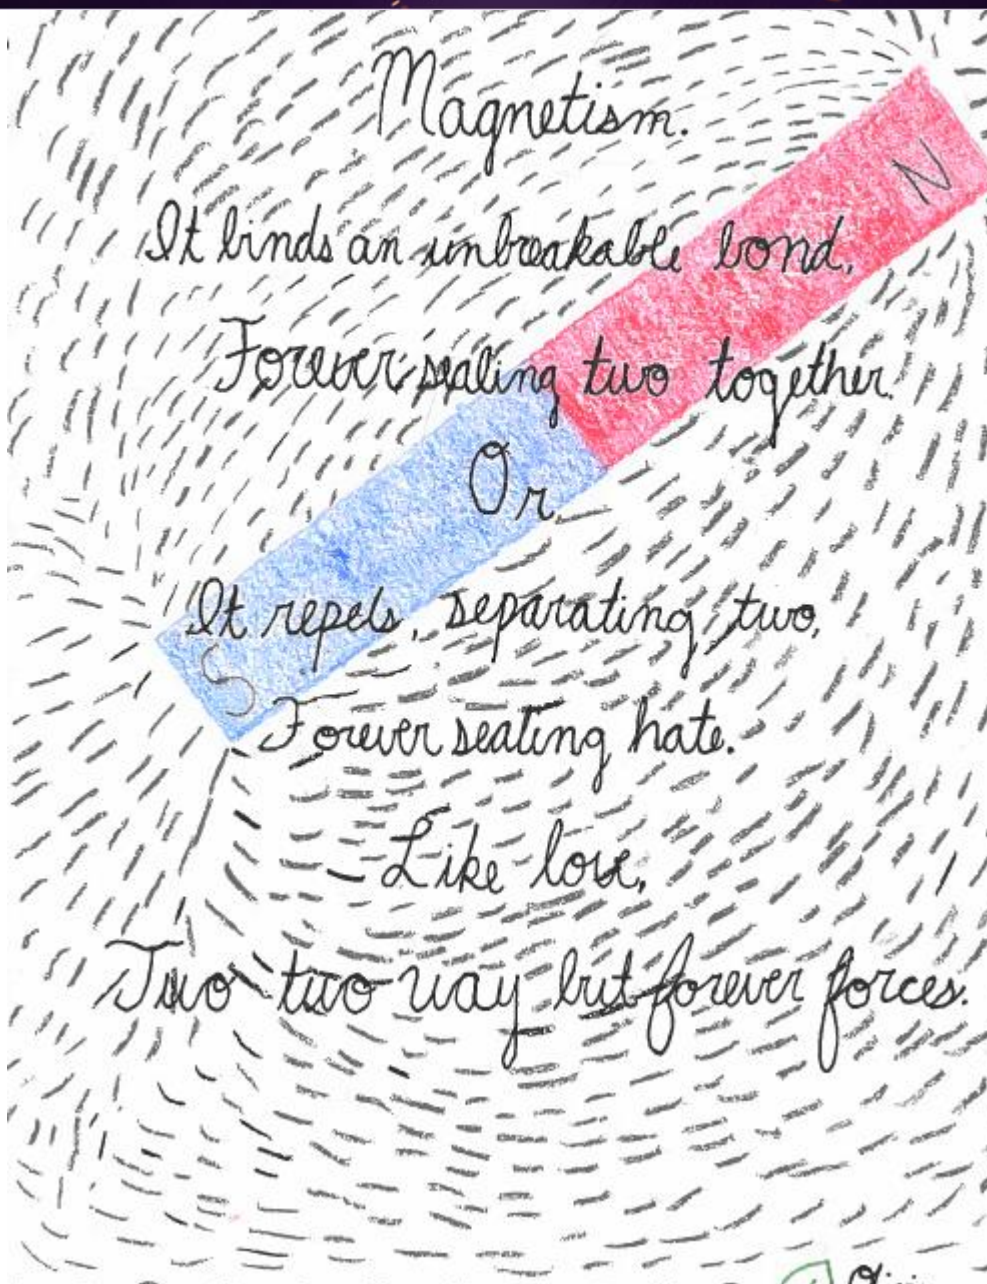 Magnetism.
N
It binds an unbreakable bond,
Forever sealing two together.
Or
It repels, separating two,
S
Forever seating hate.
Like love,
Two two way but forever forces.